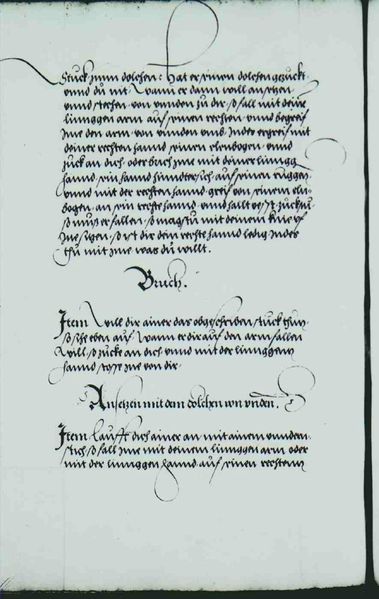 Stuck zum dolchen: Hat er seinen dolchen gezuckt
vnnd du nit. Wann er dann will ansetzen
vnnd stechen von vnnden zu dir, so fall mit deinem
linnggen arm auf seinen rechten vnnd begreif
Jne den arm von vnnden vnd Jnder ergreif mit
deiner rechten hannd seinen elenbogen vnnd
zuck an dich oder buch Jne mit deiner linngg
hannd sein hannd hinndersich auf seinen ruggen
vnnd mit der rechten hannd greif von seinem eln
bogen an sein rechte hannd vnnd halt
so muß er fallen, so magstu mit deinem knie vf
Jne ligen, so ist dir dein rechte hannd ledig Jnder
thu mit Jne was du willt.
Bruch.
Jtem Will dir ainer das obgeschriben stuck thun
so sihe eben auf Wann er dir auf den arm fallen
Will so zucke an dich vnnd mit der linnggenn
hannd stoss Jne von dir
Ansetzen mit dem dolchen von vnden.
Jtem laufft dich ainer an mit ainem vnndern
stich so fall Jme mit deinem linnggen arm oder
mit der linnggen hannd auf seinen rechtenn